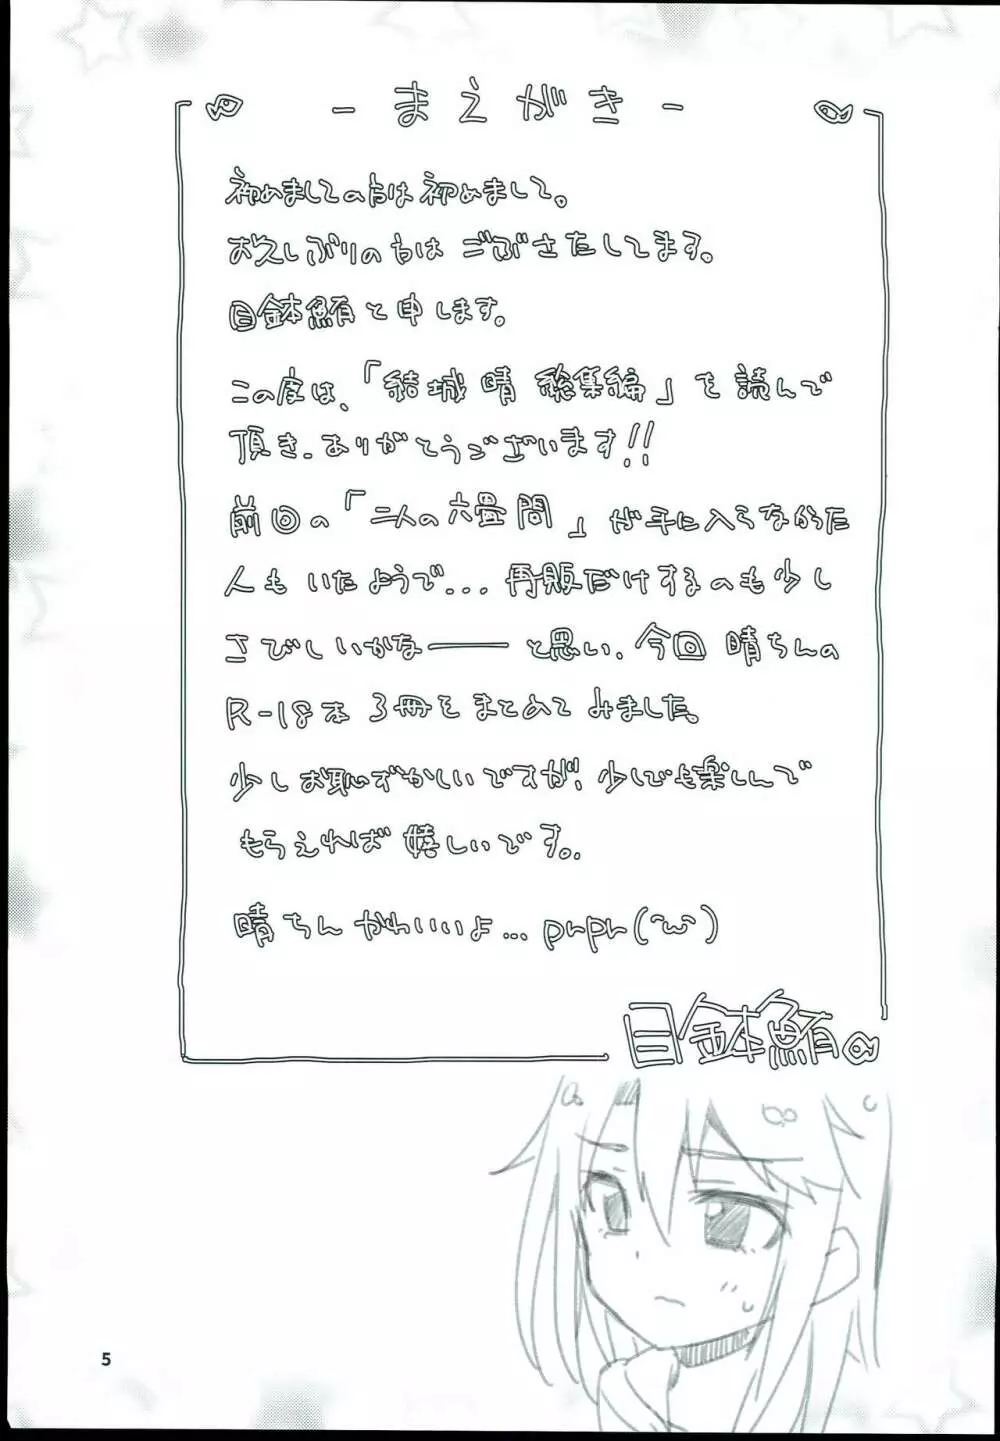 - まえがき -
初めましての方は初めまして。
お久しぶりの方は ごぶさたしてます。
目鉢鮪と申します。
この度は、「結城 晴 総集編」を読んで
頂き、ありがとうございます!!
前回の「二人の六畳間」が手に入らなかった
人もいたようで... 再販だけするのも少し
さびしいかなーーと思い、今回 晴ちんの
R-18本 3冊をまとめてみました。
少しお恥ずかしいですが、少しでも楽しんで
もらえれば嬉しいです。
晴ちんかわいいよ... prpr(~ω~)
目鉢鮪
5